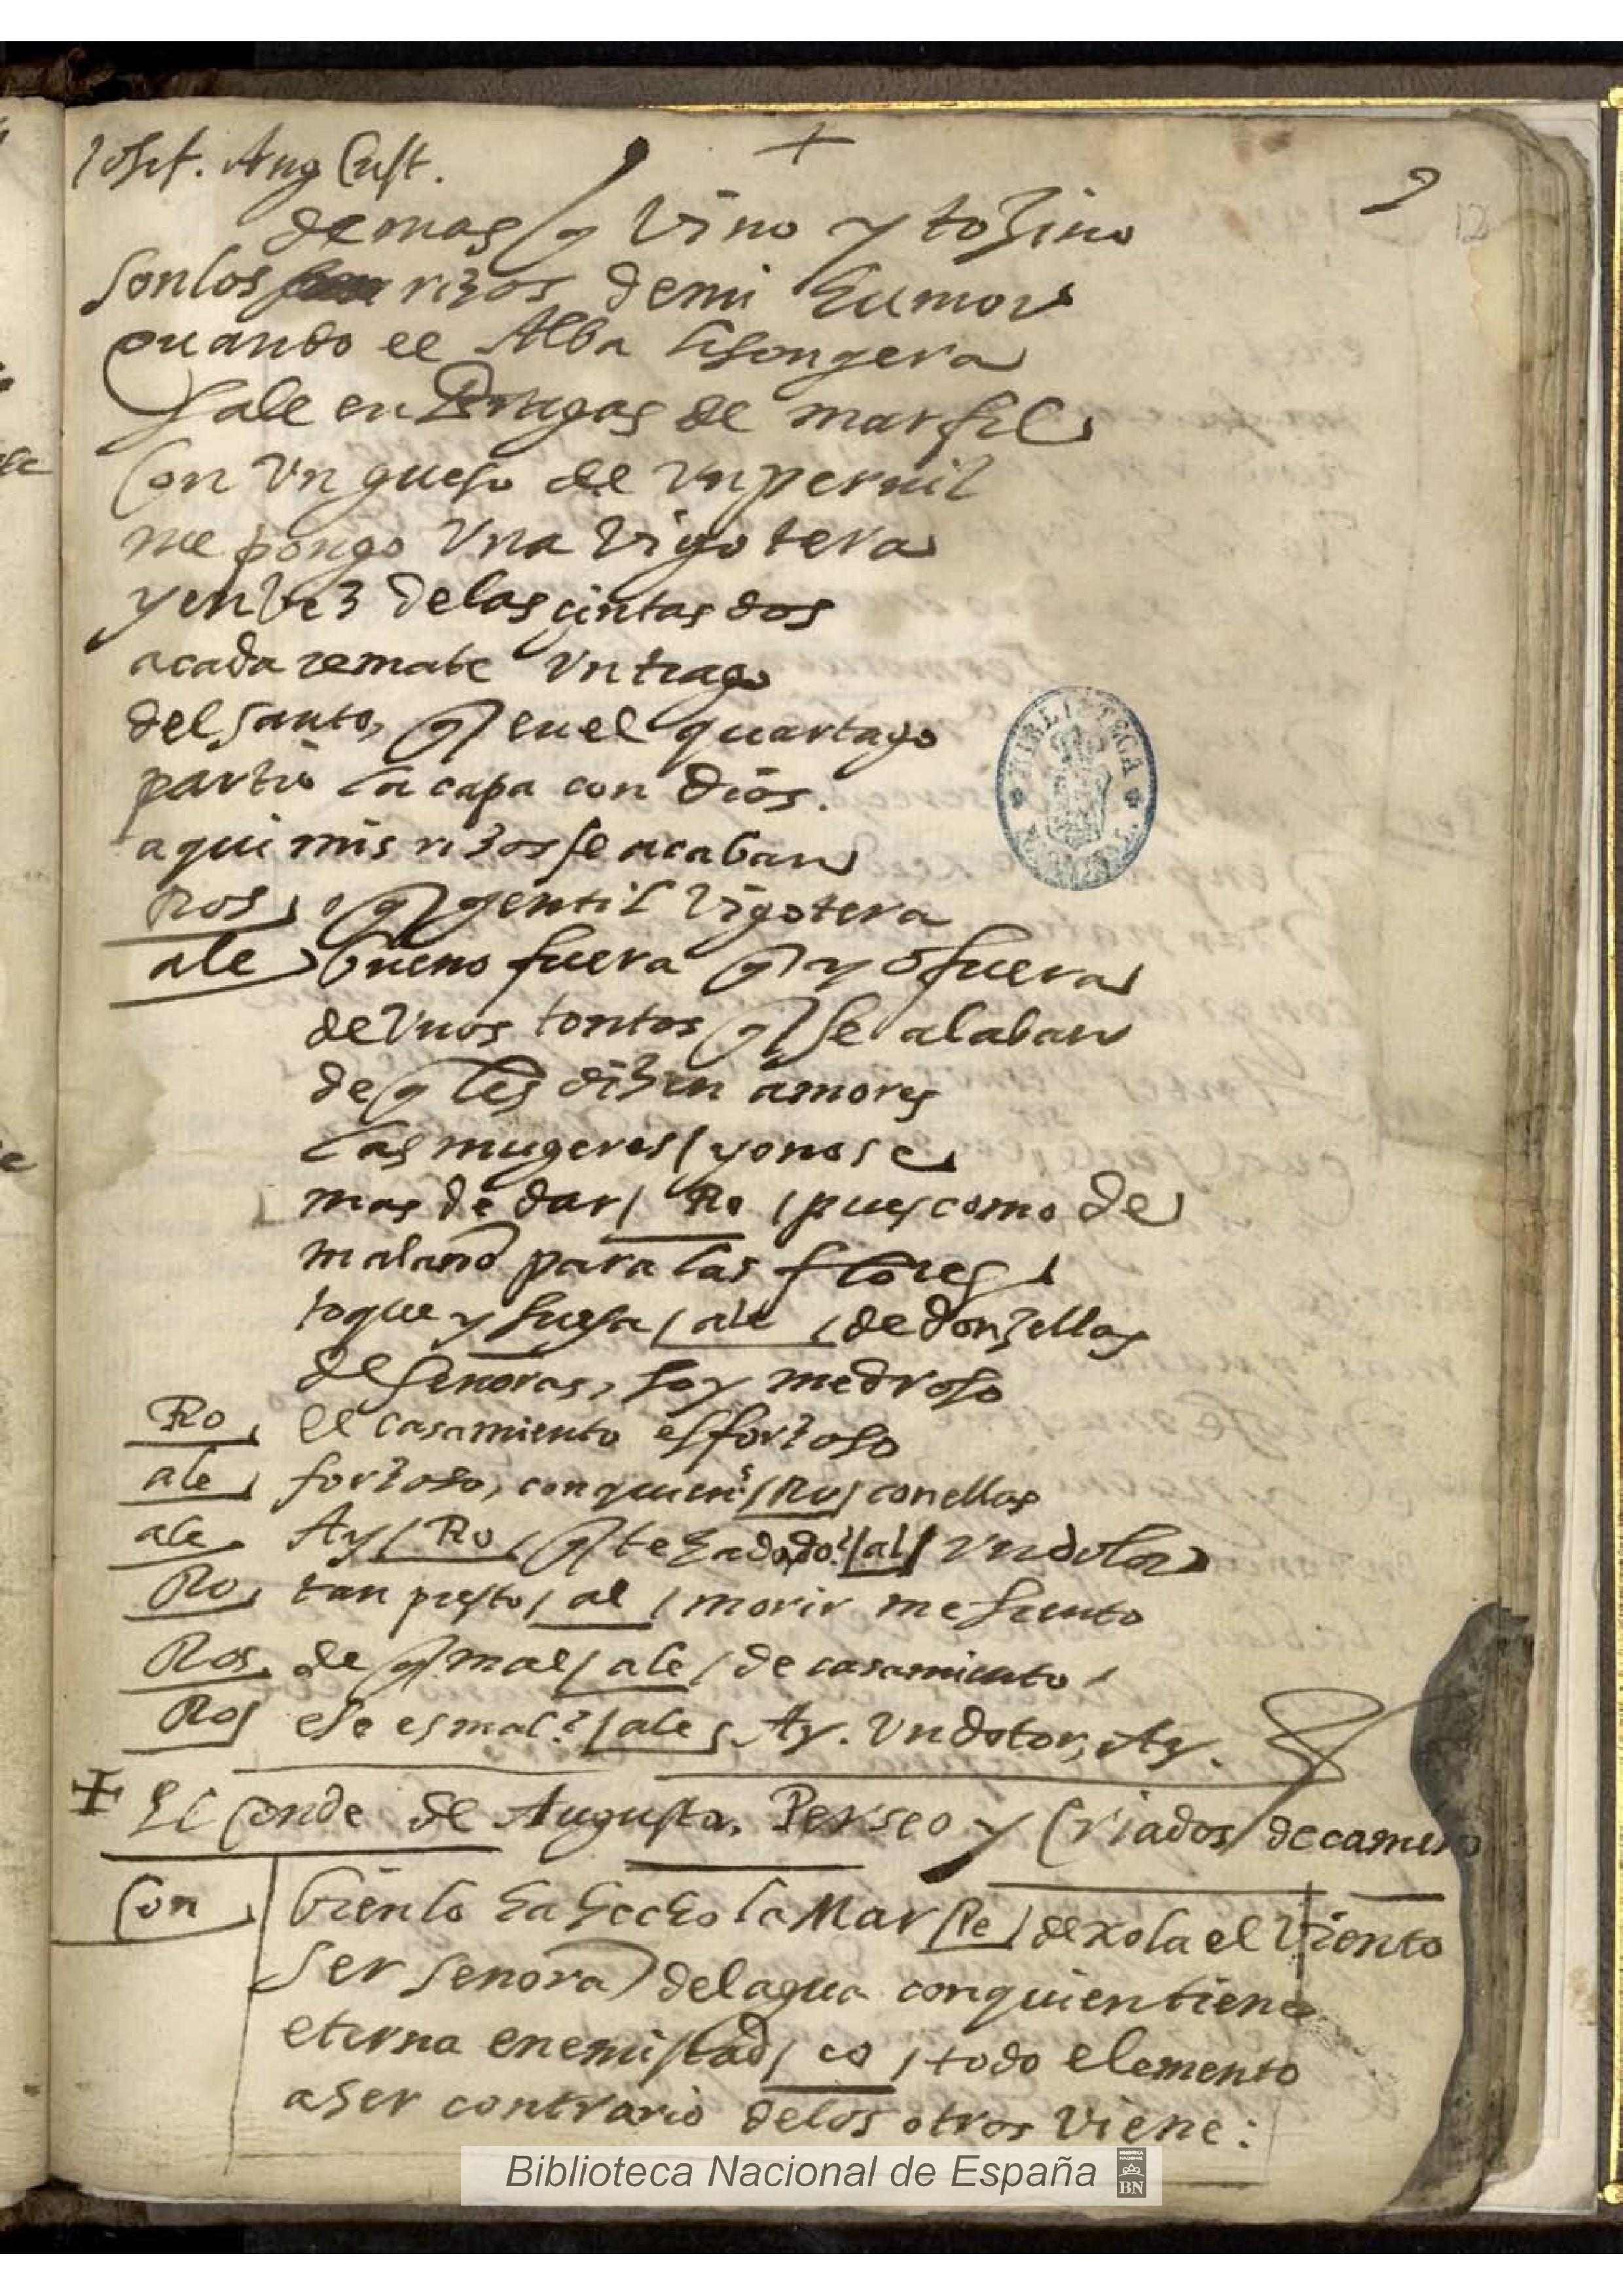 Josef. Ang Cust. +
9
12
demas q Vino y tozino
son los rizos demi humor
quando el Alba lisongera
sale en Bragas de marfil
Con Vn gueso de Vn pernil
me pongo Vna Vigotera
y en Vez delas cintas dos
acada remate Vn trago
del santo, q en el quartago
partio la capa con Dios.
aqui mis rizos se acaban
Ros o q gentil Vigotera
ale bueno fuera q yo fuera
de Vnos tontos q se alaban
de q les dizen amores
las mugeres / yo no se
mas de dar / Ro / pues como de
malano para las flores
toque y huya / ale / de donzellas
de senoras, soy medroso
Ro el casamiento es forzoso
ale forzoso, con quien? / Ro / con ellas
ale Ay / Ro / q te ha dado? / al / Vn dolor
Ro tan presto / al / morir me siento
Ros de q mal / ale / de casamiento
Ros ese es mal? / ale / Ay. Vn dotor, Ay.
+ El Conde de Augusta. Perseo y Criados de camino
Con bien lo ha hecho la Mar / Pe / dexola el Viento
ser senora del agua con quien tiene
eterna enemistad / co / todo elemento
a ser contrario delos otros Viene:
BIBLIOTECA
Biblioteca Nacional de España
BN